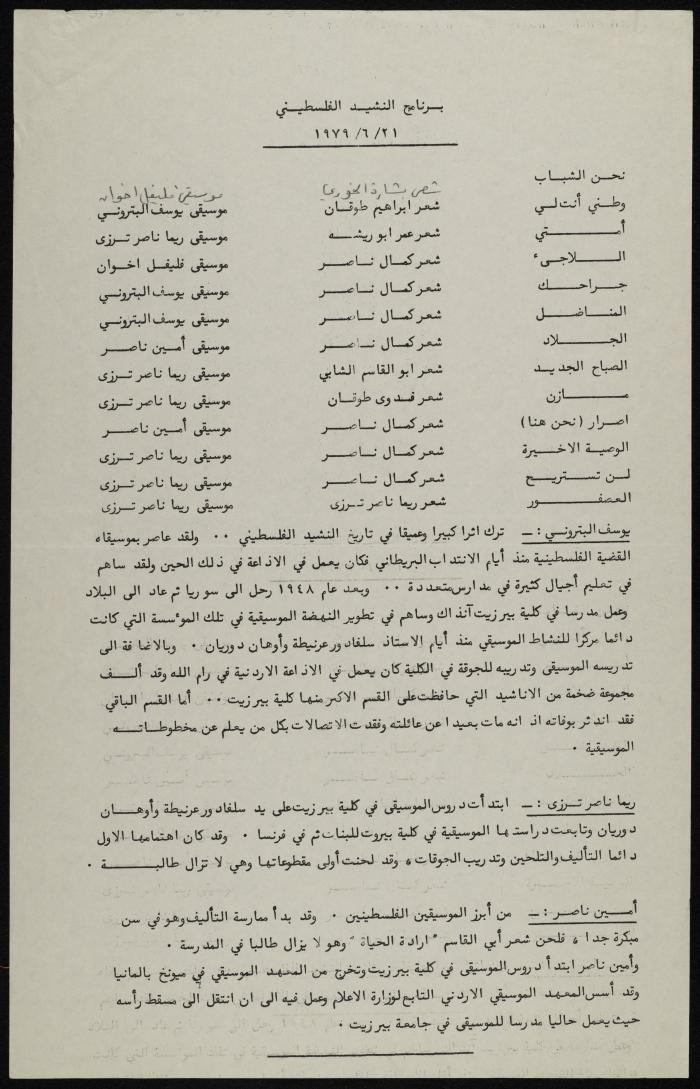 برنامج النشيد الفلسطيني
٢١/ ٦/ ١٩٧٩
نحن الشباب شعر بشارة الخوري موسيقى فليفل اخوان
وطني أنت لي شعر ابراهيم طوقان موسيقى يوسف البتروني
أمتي شعر عمر ابو ريشه موسيقى ريما ناصر ترزى
اللاجىء شعر كمال ناصر موسيقى فليفل اخوان
جراحك شعر كمال ناصر موسيقى يوسف البتروني
المناضل شعر كمال ناصر موسيقى يوسف البتروني
الجلاد شعر كمال ناصر موسيقى أمين ناصر
الصباح الجديد شعر ابو القاسم الشابي موسيقى ريما ناصر ترزى
مازن شعر فدوى طوقان موسيقى ريما ناصر ترزى
اصرار (نحن هنا) شعر كمال ناصر موسيقى أمين ناصر
الوصية الاخيرة شعر كمال ناصر موسيقى ريما ناصر ترزى
لن تستريح شعر كمال ناصر موسيقى ريما ناصر ترزى
العصفور شعر ريما ناصر ترزى موسيقى ريما ناصر ترزى
يوسف البتروني : ــ ترك اثرا كبيرا وعميقا في تاريخ النشيد الفلسطيني ٠٠ ولقد عاصر بموسيقاه
القضية الفلسطينية منذ أيام الانتداب البريطاني فكان يعمل في الاذاعة في ذلك الحين ولقد ساهم
في تعليم أجيال كثيرة في مدارس متعددة ٠٠ وبعد عام ١٩٤٨ رحل الى سوريا ثم عاد الى البلاد
وعمل مدرسا في كلية بيرزيت آنذاك وساهم في تطوير النهضة الموسيقية في تلك المؤسسة التي كانت
دائما مركزا للنشاط الموسيقي منذ أيام الاستاذ سلفادور عرنيطة وأوهان دوريان ٠ وبالاضافة الى
تدريسه الموسيقى وتدريبه للجوقة في الكلية كان يعمل في الاذاعة الاردنية في رام الله وقد ألف
مجموعة ضخمة من الاناشيد التي حافظت على القسم الاكبر منها كلية بيرزيت ٠٠ أما القسم الباقي
فقد اندثر بوفاته اذ انه مات بعيدا عن عائلته وفقدت الاتصالات بكل من يعلم عن مخطوطاته
الموسيقية ٠
ريما ناصر ترزى : ــ ابتدأت دروس الموسيقى في كلية بيرزيت على يد سلفادور عرنيطة وأوهان
دوريان وتابعت دراستها الموسيقية في كلية بيروت للبنات ثم في فرنسا ٠ وقد كان اهتمامها الاول
دائما التأليف والتلحين وتدريب الجوقات ، وقد لحنت أولى مقطوعاتها وهي لا تزال طالبة ٠
أمين ناصر : ــ من أبرز الموسيقين الفلسطينين ٠ وقد بدأ ممارسة التأليف وهو في سن
مبكرة جدا ، فلحن شعر أبي القاسم "ارادة الحياة" وهو لا يزال طالبا في المدرسة ٠
وأمين ناصر ابتدأ دروس الموسيقى في كلية بيرزيت وتخرج من المعهد الموسيقي في ميونخ بالمانيا
وقد أسس المعهد الموسيقي الاردني التابع لوزارة الاعلام وعمل فيه الى ان انتقل الى مسقط رأسه
حيث يعمل حاليا مدرسا للموسيقى في جامعة بيرزيت ٠